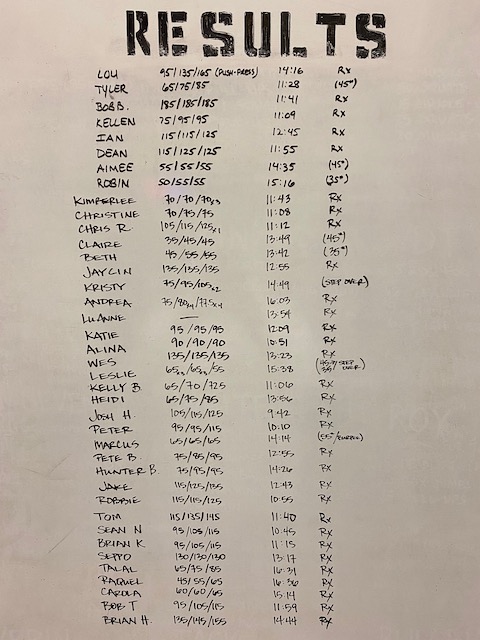 RESULTS
LOU 95/135/165 (PUSH-PRESS) 14:16 Rx
TYLER 65/75/85 11:28 (45")
BOB B. 185/185/185 11:41 Rx
KELLEN 75/95/95 11:09 Rx
IAN 115/115/125 12:45 Rx
DEAN 115/125/125 11:55 Rx
AIMEE 55/55/55 14:35 (45")
ROBIN 50/55/55 15:16 (35")
KIMBERLEE 70/70/70x3 11:43 Rx
CHRISTINE 70/75/75 11:08 Rx
CHRIS R. 105/115/125x1 11:12 Rx
CLAIRE 35/45/45 13:49 (45")
BETH 45/55/55 13:42 (35")
JAYLIN 135/135/135 12:55 Rx
KRISTY 75/95/105x2 14:49 (STEP OVER)
ANDREA 75/80/77.5 16:03 Rx
LUANNE — 13:54 Rx
KATIE 95/95/95 12:09 Rx
ALINA 90/90/90 10:51 Rx
WES 135/135/135 13:23 Rx
LESLIE 65/65/55 15:38 STEP OVER)
KELLY B. 65/70/725 11:06 Rx
HEIDI 65/75/85 13:56 Rx
JOSH H. 105/115/125 9:42 Rx
PETER 95/95/115 10:10 Rx
MARCUS 65/65/65 14:14 (55#/BURPEE)
PETE B. 75/85/95 12:55 Rx
HUNTER B. 75/95/95 14:26 Rx
JAKE 115/125/135 12:43 Rx
ROBBIE 115/115/125 10:55 Rx
TOM 115/135/145 11:40 Rx
SEAN N 95/105/115 10:45 Rx
BRIAN K 95/105/115 11:15 Rx
SEPPO 130/130/130 13:17 Rx
TALAL 65/75/85 16:31 Rx
RAQUEL 45/55/65 16:36 Rx
CAROLA 60/60/65 15:14 Rx
BOB T 95/105/115 11:59 Rx
BRIAN H. 135/145/155 14:44 Rx